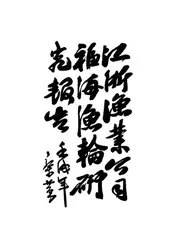 江浙漁業公司
福海漁輪研
究報告
壬戌年